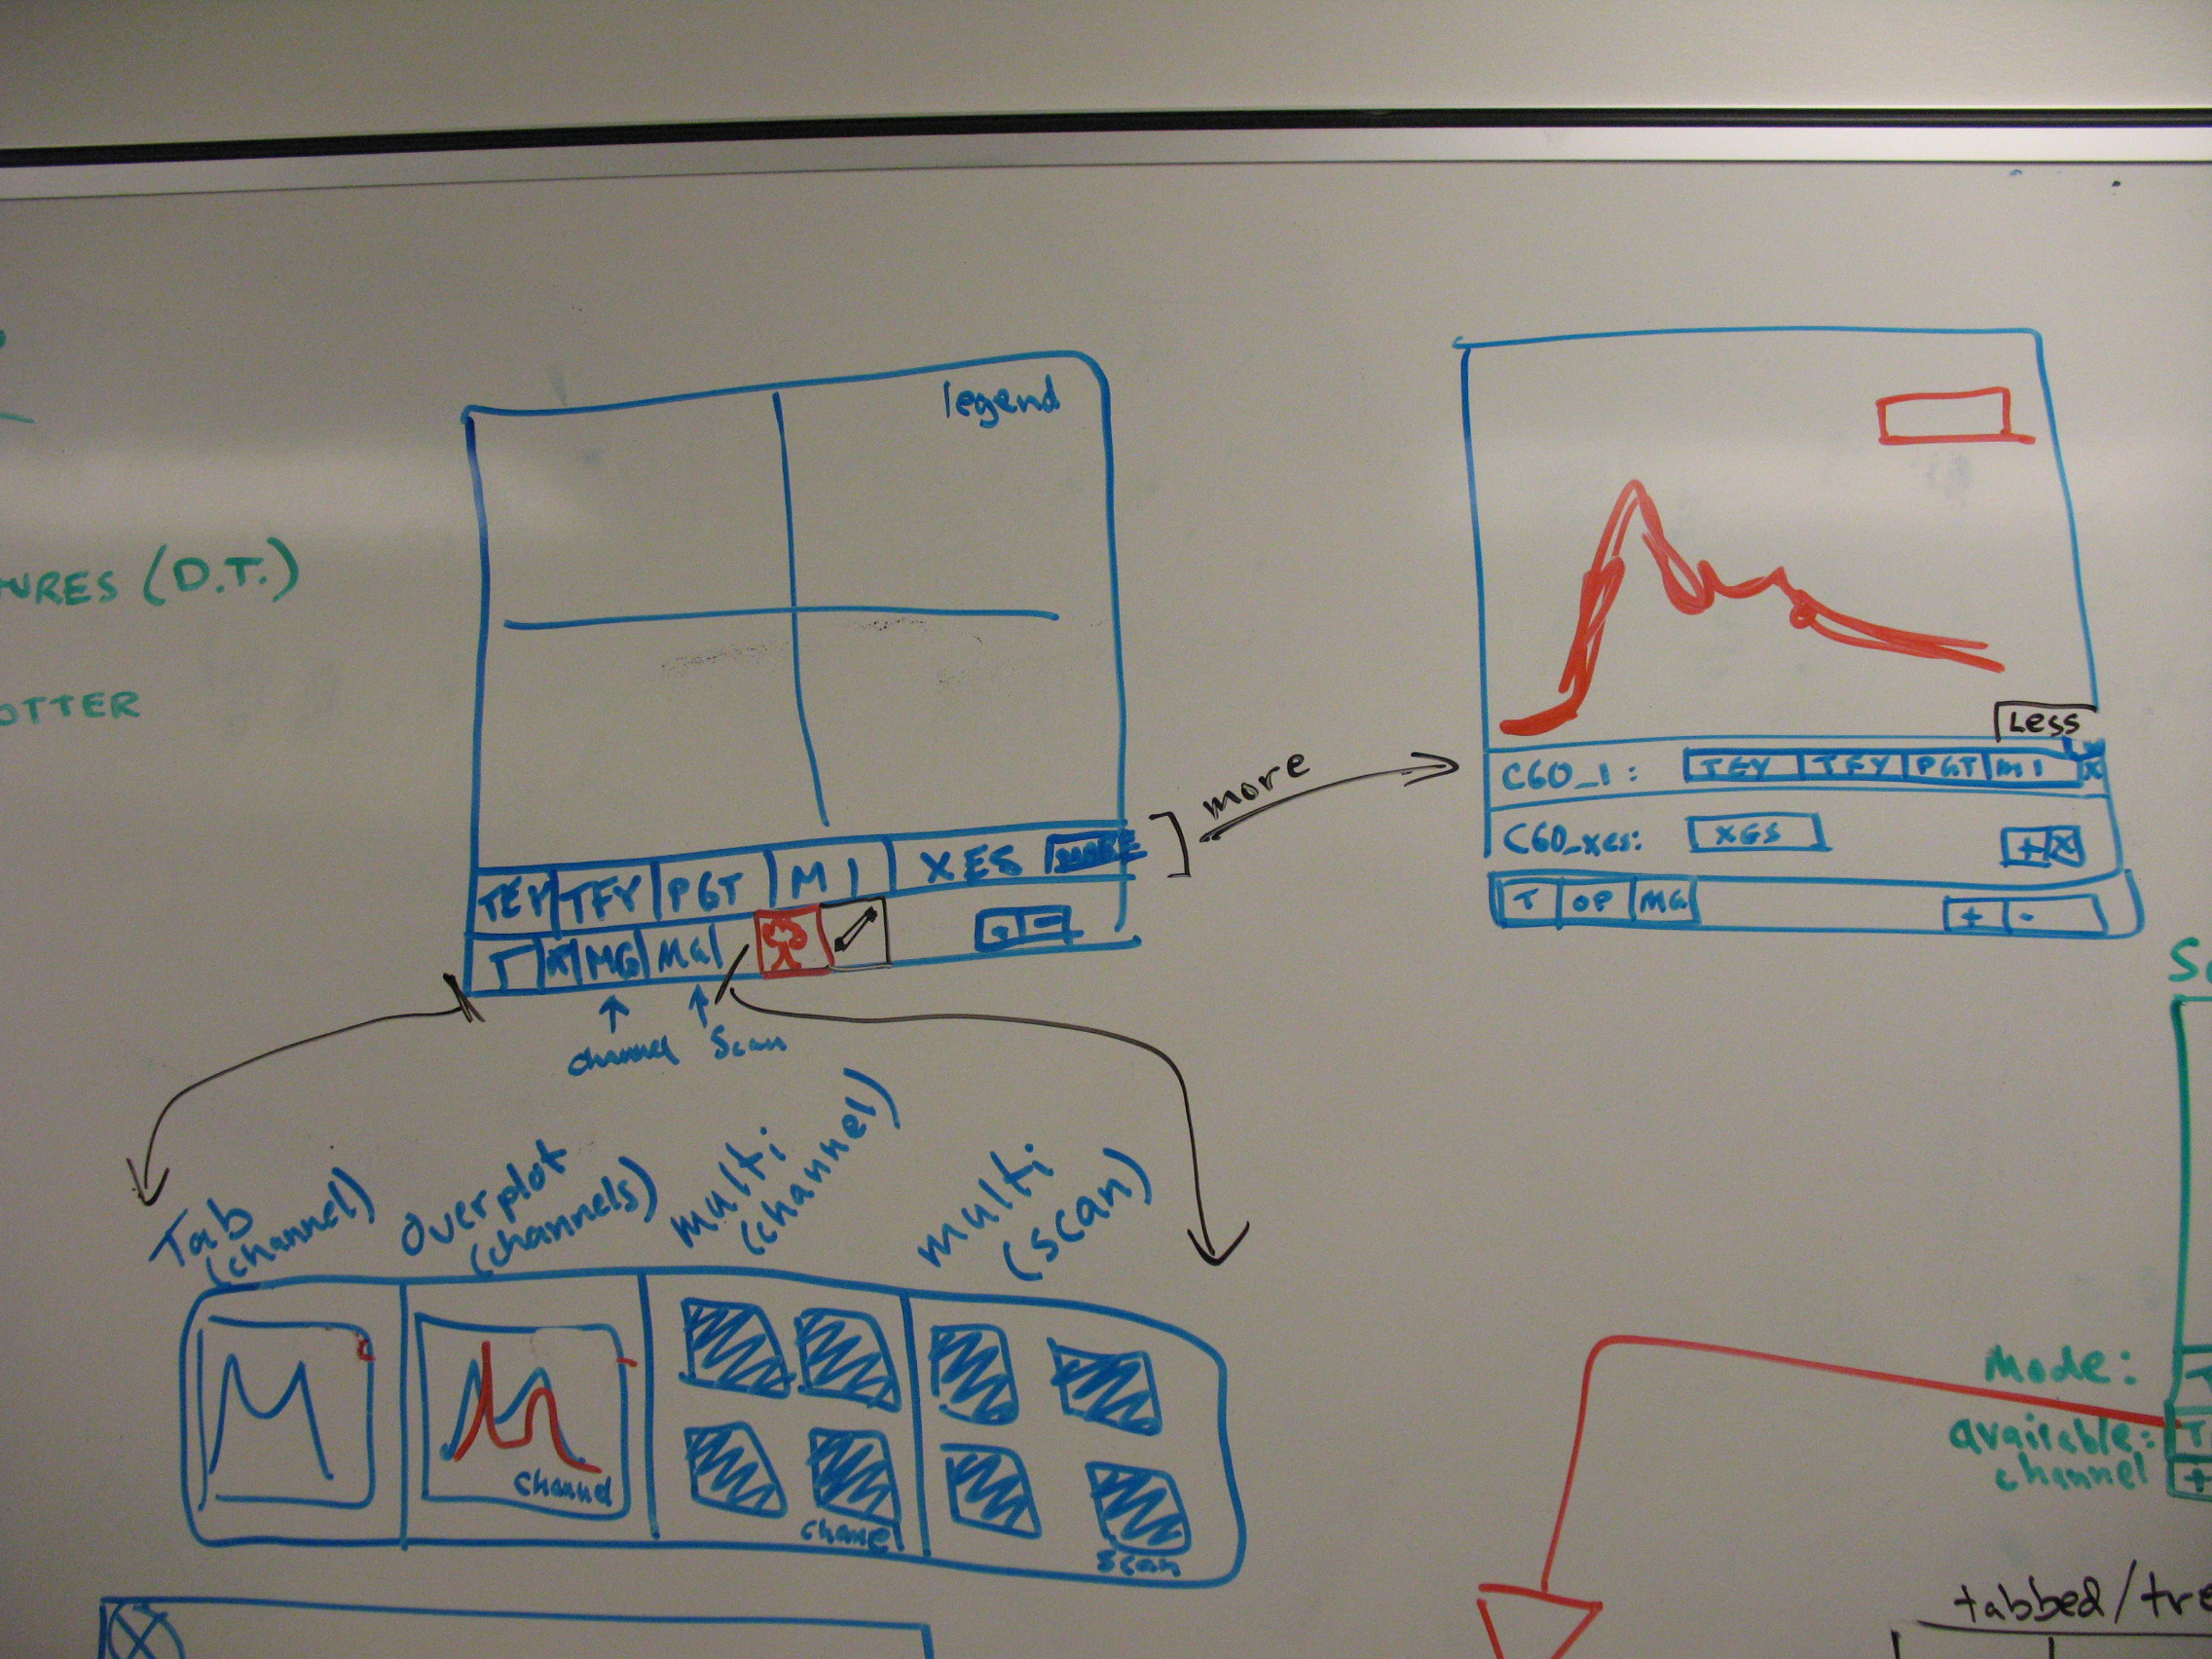 URES (D.T.)
OTTER
legend
TEY TFY PGT M I XES MORE
T MG MG + -
channel scan
more
LESS
C60_1: TEY TFY PGT M I X
C60_xes: XES + X
T OP MG + -
Tab
(channel)
overplot
(channels)
multi
(channel)
multi
(scan)
channel
channel
scan
Mode:
available:
channel
+
tabbed/tre